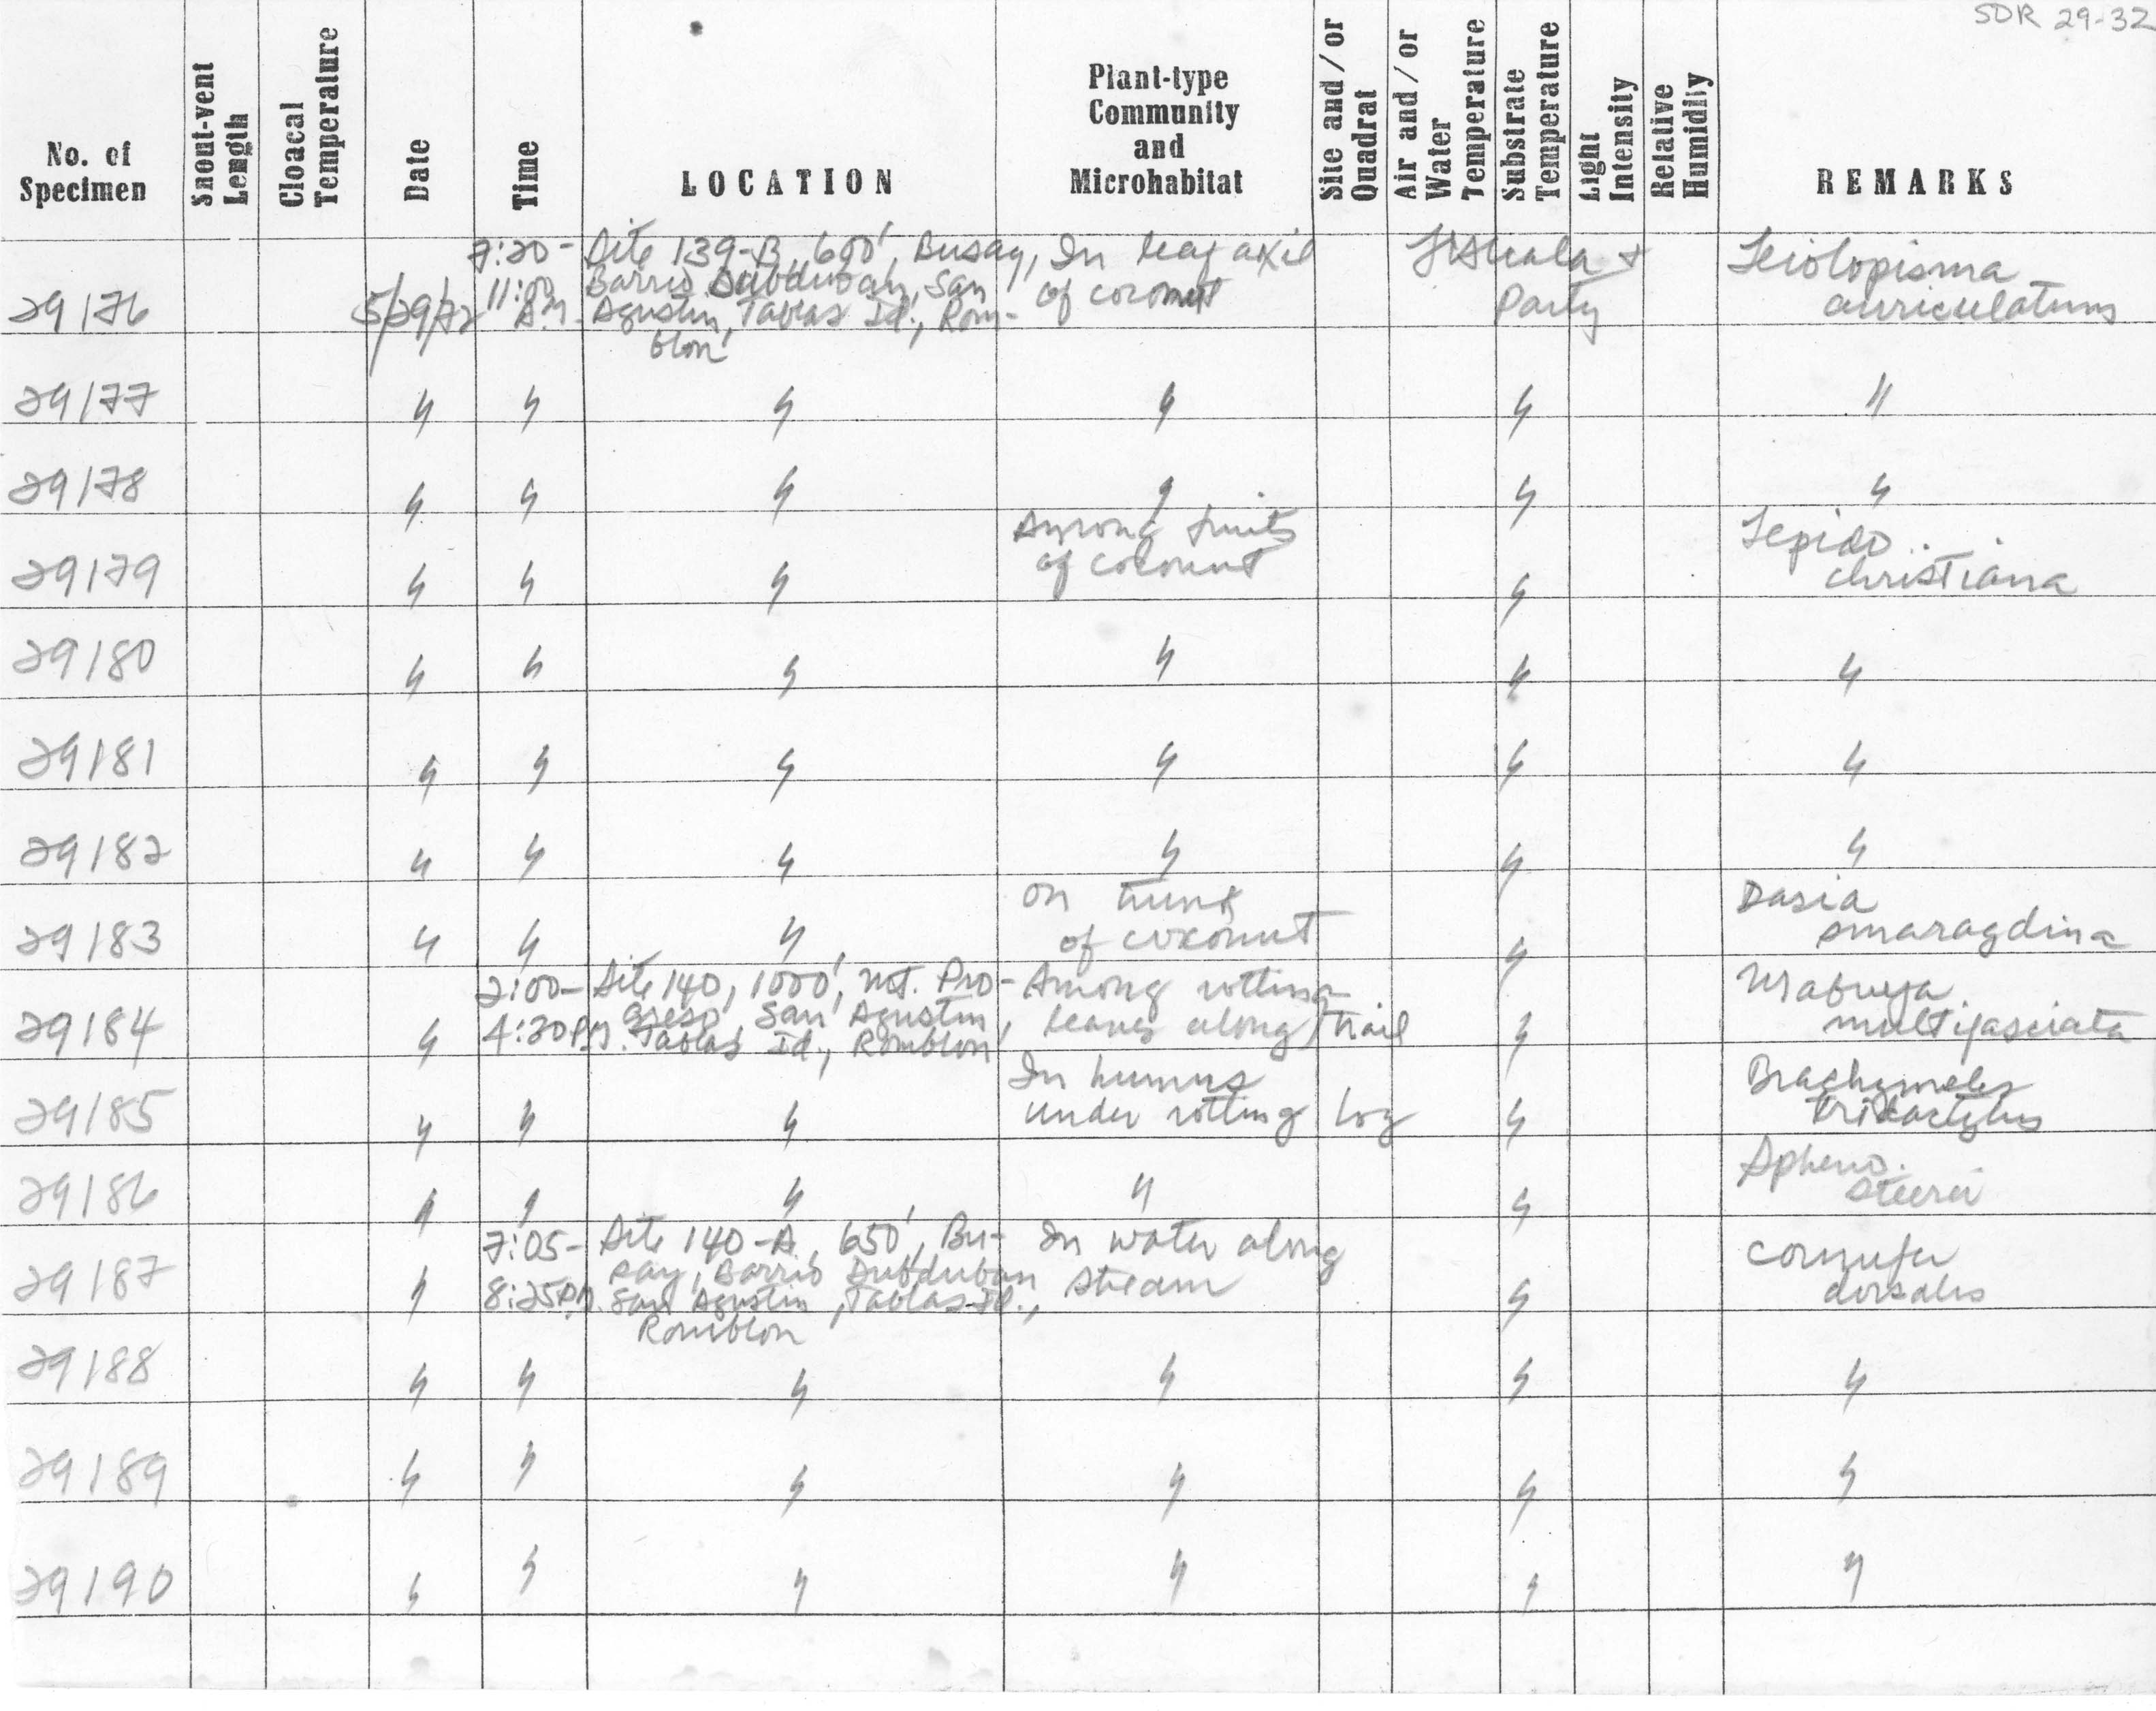 SDR 29-32
No. of Specimen | Snout-vent Length | Cloacal Temperature | Date | Time | LOCATION | Plant-type Community and Microhabitat | Site and/or Quadrat | Air and/or Water Temperature | Substrate Temperature | Light Intensity | Relative Humidity | REMARKS
29176 | 5/29/72 | 7:20-11:00 A.M. | Site 139-B, 600', Busay, Barrio Dubduban, San Agustin, Tablas Id., Romblon | In leaf axil of coconut | & Party | Leiolopisma auriculatum
29177 | " | " | " | " | " | "
29178 | " | " | " | " | " | "
29179 | " | " | " | Among fruits of coconut | " | Lepido. christiana
29180 | " | " | " | " | " | "
29181 | " | " | " | " | " | "
29182 | " | " | " | " | " | "
29183 | " | " | " | on trunk of coconut | " | Dasia smaragdina
29184 | " | 2:00-4:30 P.M. | Site 140, 1000', Mt. Progreso, San Agustin, Tablas Id., Romblon | Among rotting leaves along trail | " | Mabuya multifasciata
29185 | " | " | " | In humus under rotting log | " | Brachymeles tridactylus
29186 | " | " | " | " | " | Spheno. steerei
29187 | " | 7:05-8:25 P.M. | Site 140-A, 650', Busay, Barrio Dubduban San Agustin, Tablas Id., Romblon | In water along stream | " | Cornufer dorsalis
29188 | " | " | " | " | " | "
29189 | " | " | " | " | " | "
29190 | " | " | " | " | " | "